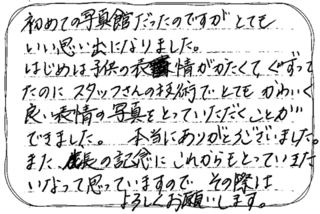 初めての写真館だったのですがとても
いい思い出になりました。
はじめは子供の表情がかたくて、ぐずって
たのにスタッフさんの技術でとてもかわいく
良い表情の写真をとっていただくことが
できました。 本当にありがとうございました。
また成長の記念にこれからもとっていきた
いなって思っていますので その際は
よろしくお願いします。